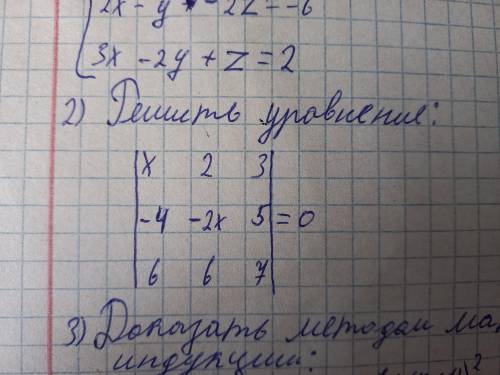 2x - y - 2z = -6
3x - 2y + z = 2
2) Решить уравнение:
x 2 3
-4 -2x 5 = 0
6 6 7
3) Доказать методом
индукции: